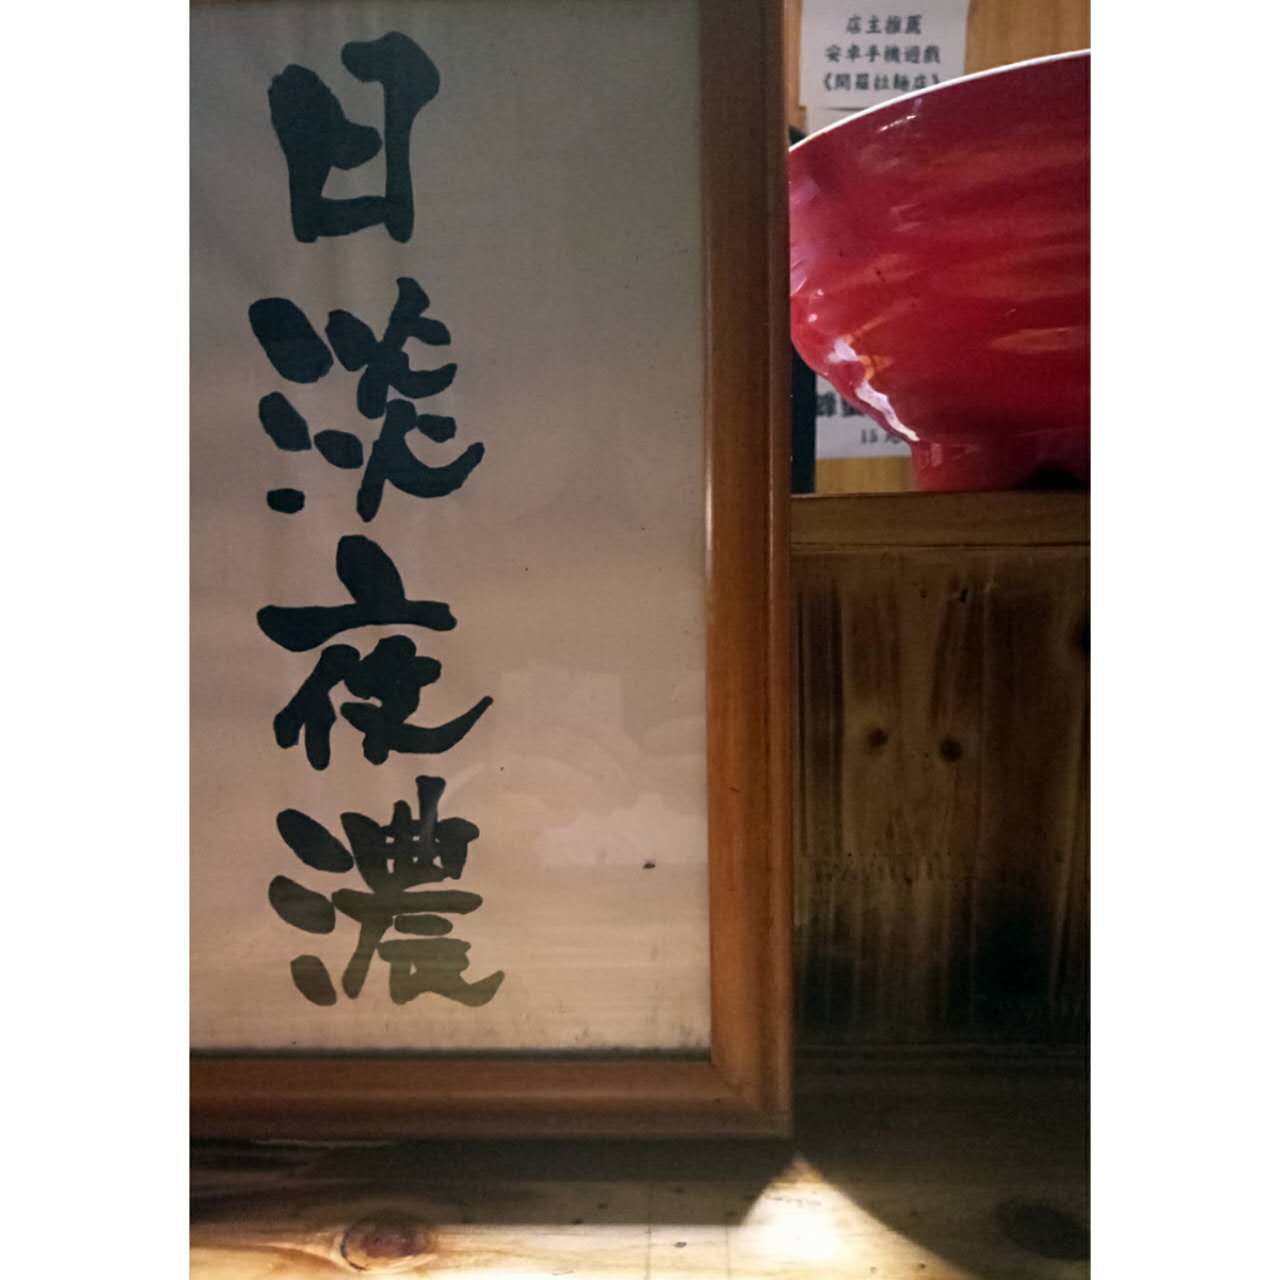 日淡夜濃
店主推薦
安卓手機遊戲
《開羅拉麵店》
15